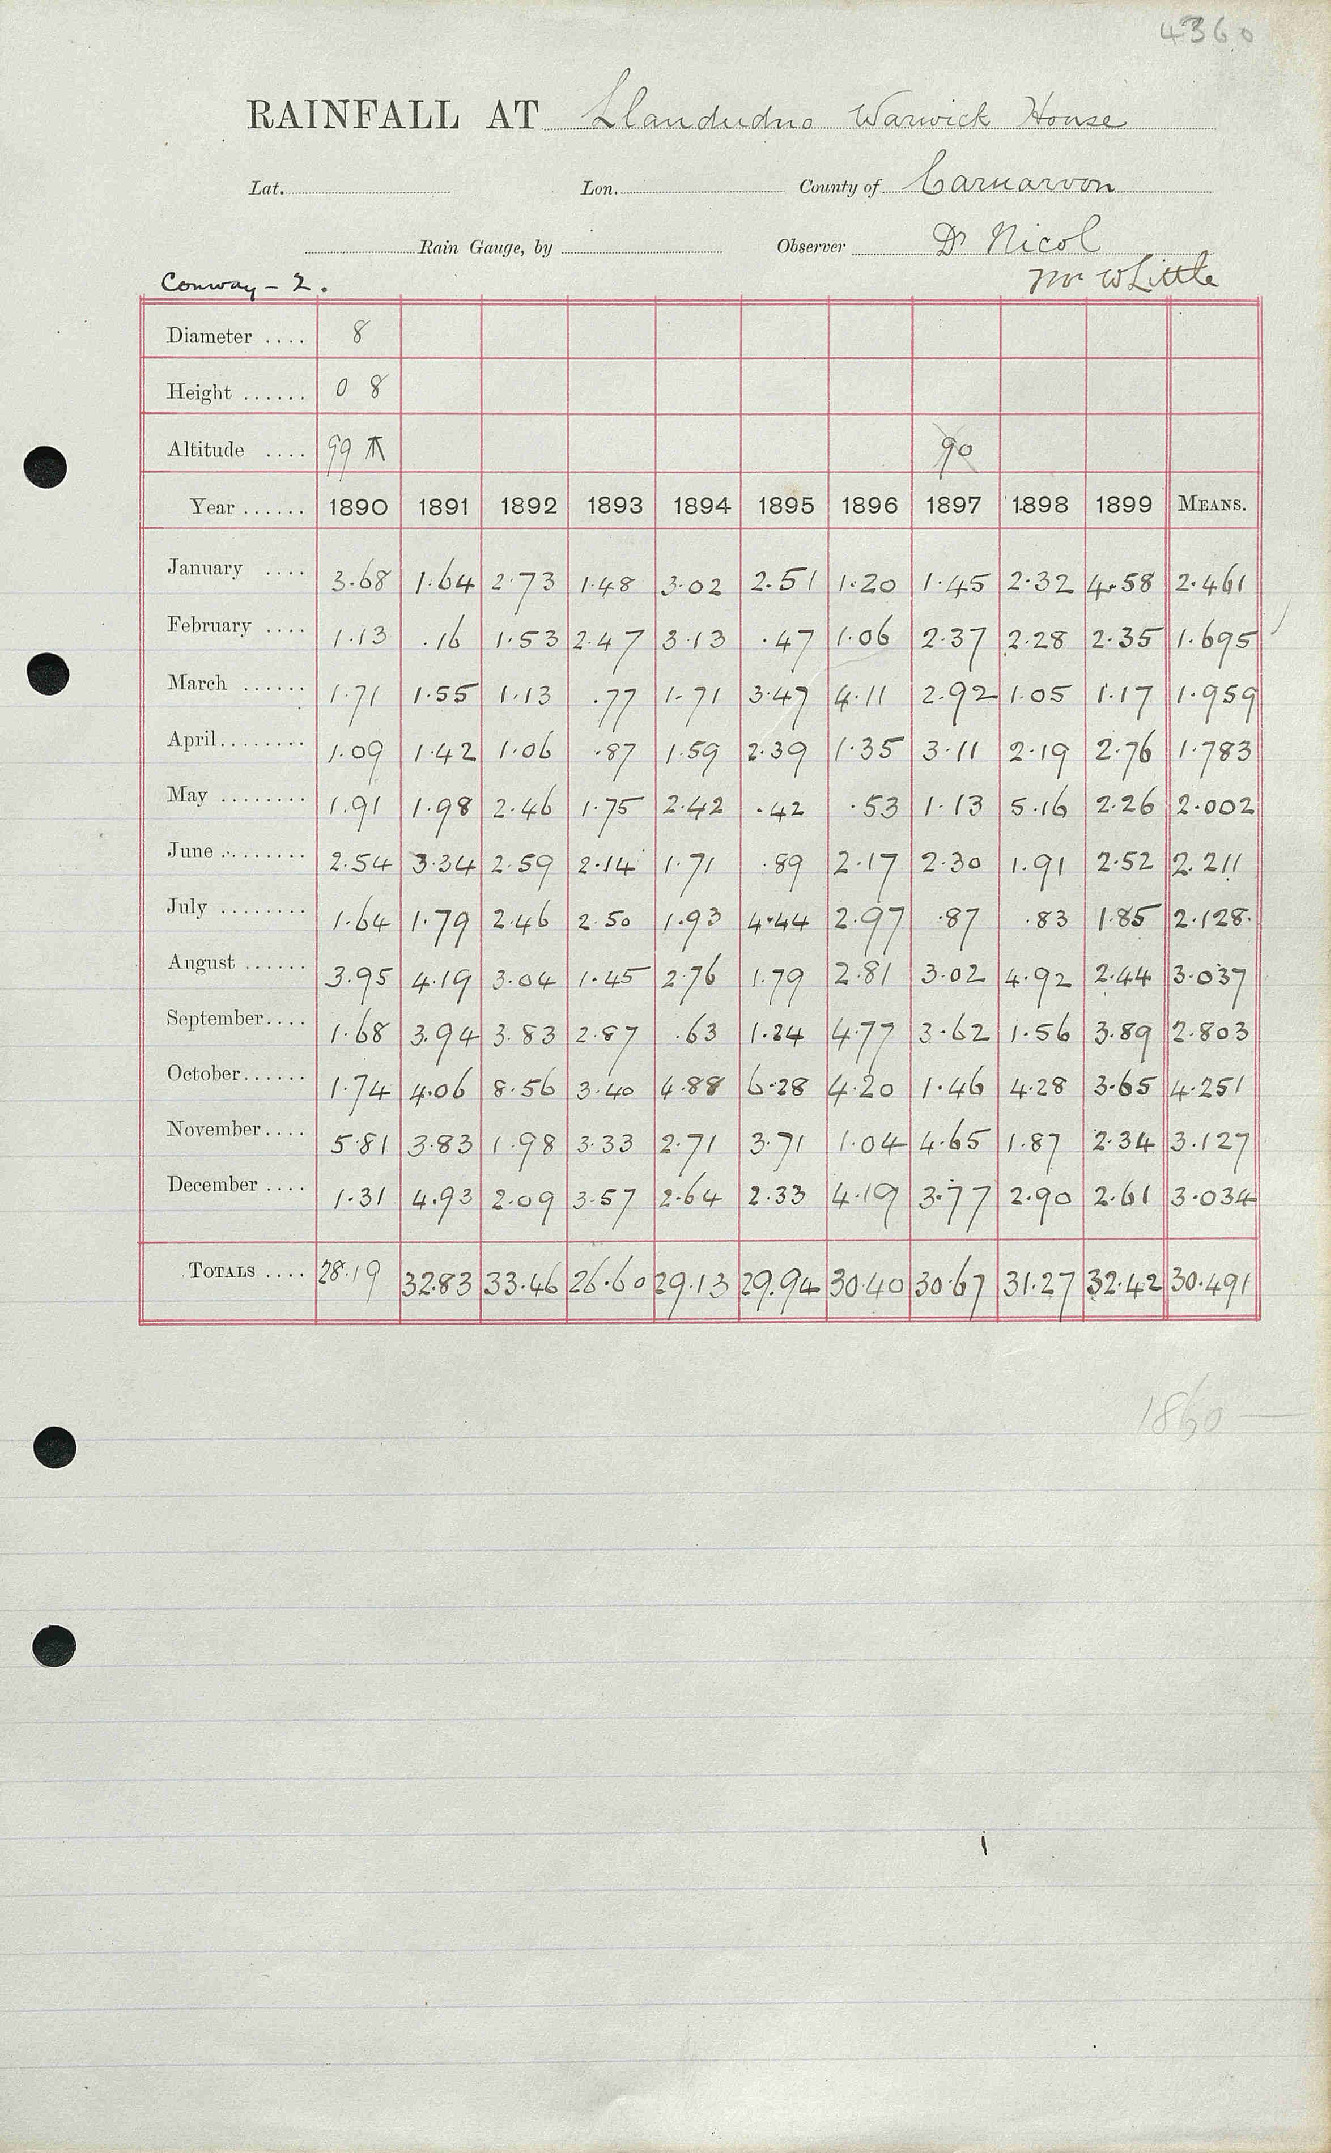 4360
RAINFALL AT Llandudno Warwick House
Lat. Lon. County of Carnarvon
Rain Gauge, by Observer Dr Nicol
Conway - 2. Mr W Little
Diameter .... 8
Height ...... 0 8
Altitude .... 99 90
Year ...... 1890 1891 1892 1893 1894 1895 1896 1897 1898 1899 MEANS.
January .... 3.68 1.64 2.73 1.48 3.02 2.51 1.20 1.45 2.32 4.58 2.461
February .... 1.13 .16 1.53 2.47 3.13 .47 1.06 2.37 2.28 2.35 1.695
March ...... 1.71 1.55 1.13 .77 1.71 3.47 4.11 2.92 1.05 1.17 1.959
April ........ 1.09 1.42 1.06 .87 1.59 2.39 1.35 3.11 2.19 2.76 1.783
May ........ 1.91 1.98 2.46 1.75 2.42 .42 .53 1.13 5.16 2.26 2.002
June ........ 2.54 3.34 2.59 2.14 1.71 .89 2.17 2.30 1.91 2.52 2.211
July ........ 1.64 1.79 2.46 2.50 1.93 4.44 2.97 .87 .83 1.85 2.128
August ...... 3.95 4.19 3.04 1.45 2.76 1.79 2.81 3.02 4.92 2.44 3.037
September .... 1.68 3.94 3.83 2.87 .63 1.24 4.77 3.62 1.56 3.89 2.803
October ...... 1.74 4.06 8.56 3.40 4.88 6.28 4.20 1.46 4.28 3.65 4.251
November .... 5.81 3.83 1.98 3.33 2.71 3.71 1.04 4.65 1.87 2.34 3.127
December .... 1.31 4.93 2.09 3.57 2.64 2.33 4.19 3.77 2.90 2.61 3.034
TOTALS .... 28.19 32.83 33.46 26.60 29.13 29.94 30.40 30.67 31.27 32.42 30.491
1860 —